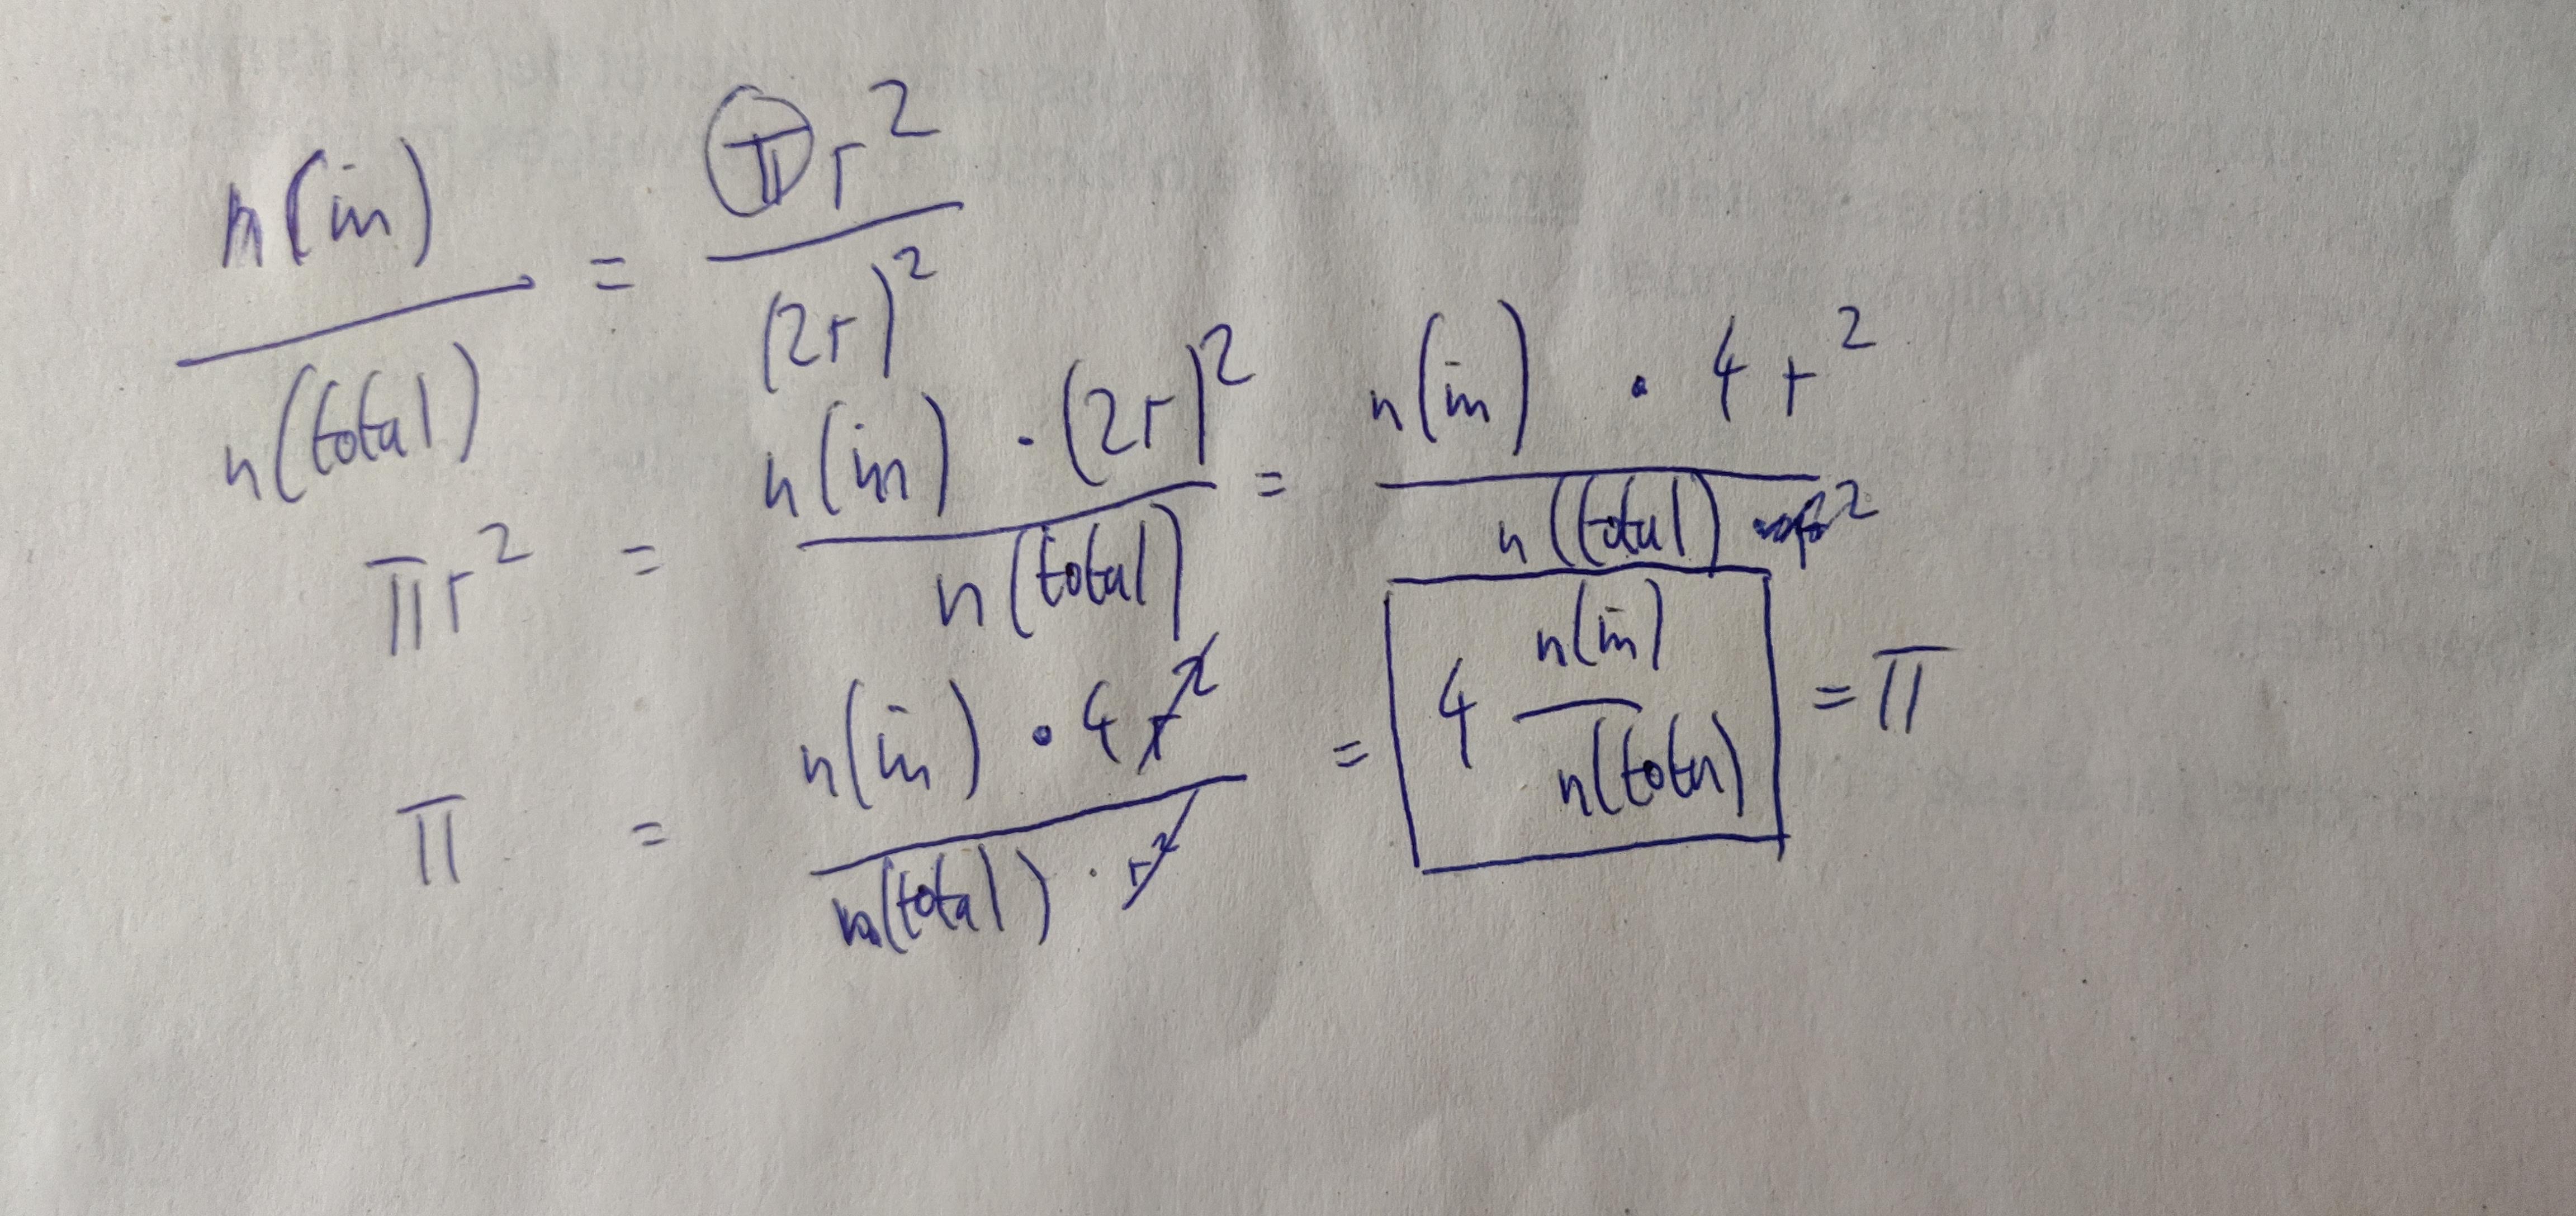 n(in) / n(total) = πr² / (2r)²
πr² = n(in) · (2r)² / n(total) = n(in) · 4r² / n(total)
π = n(in) · 4r² / n(total) · r² = 4 n(in) / n(total) = π